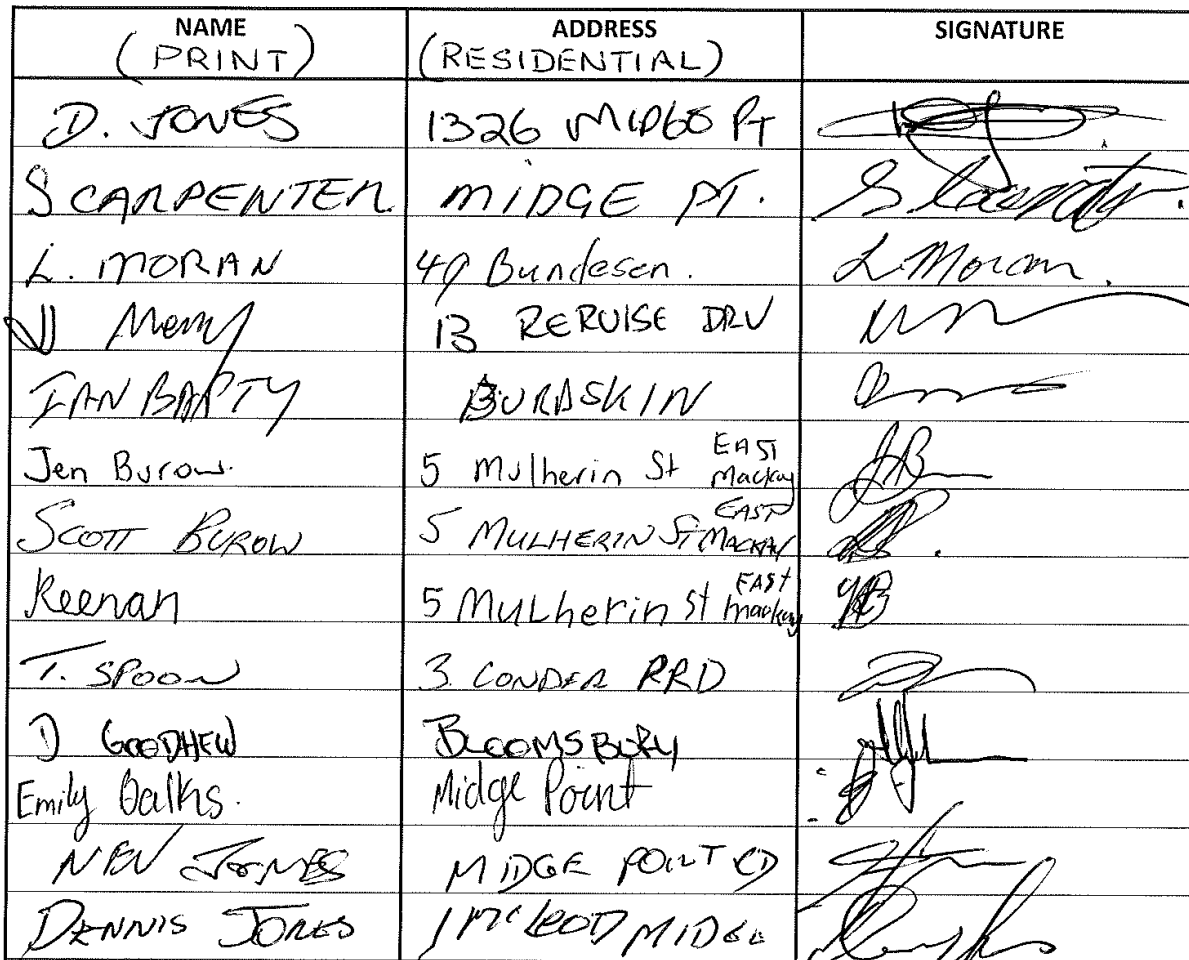 NAME ADDRESS SIGNATURE
(PRINT) (RESIDENTIAL)
D. JONES 1326 PT
S CARPENTER MIDGE PT.
L. MORAN 49 Bundesen. L Moran.
13 RERUISE DRV
IAN BAPTY
Jen Burow. 5 Mulherin St EAST Mackay
SCOTT BUROW 5 MULHERIN ST EAST MACKAY
Keenan 5 Mulherin st EAST mackay
T. SPOON 3 CONDER RRD
D GOODHEW BLOOMSBURY
Emily Midge Point
NEV JONES MIDGE POINT
DENNIS JONES 1 MCLEOD MIDGE